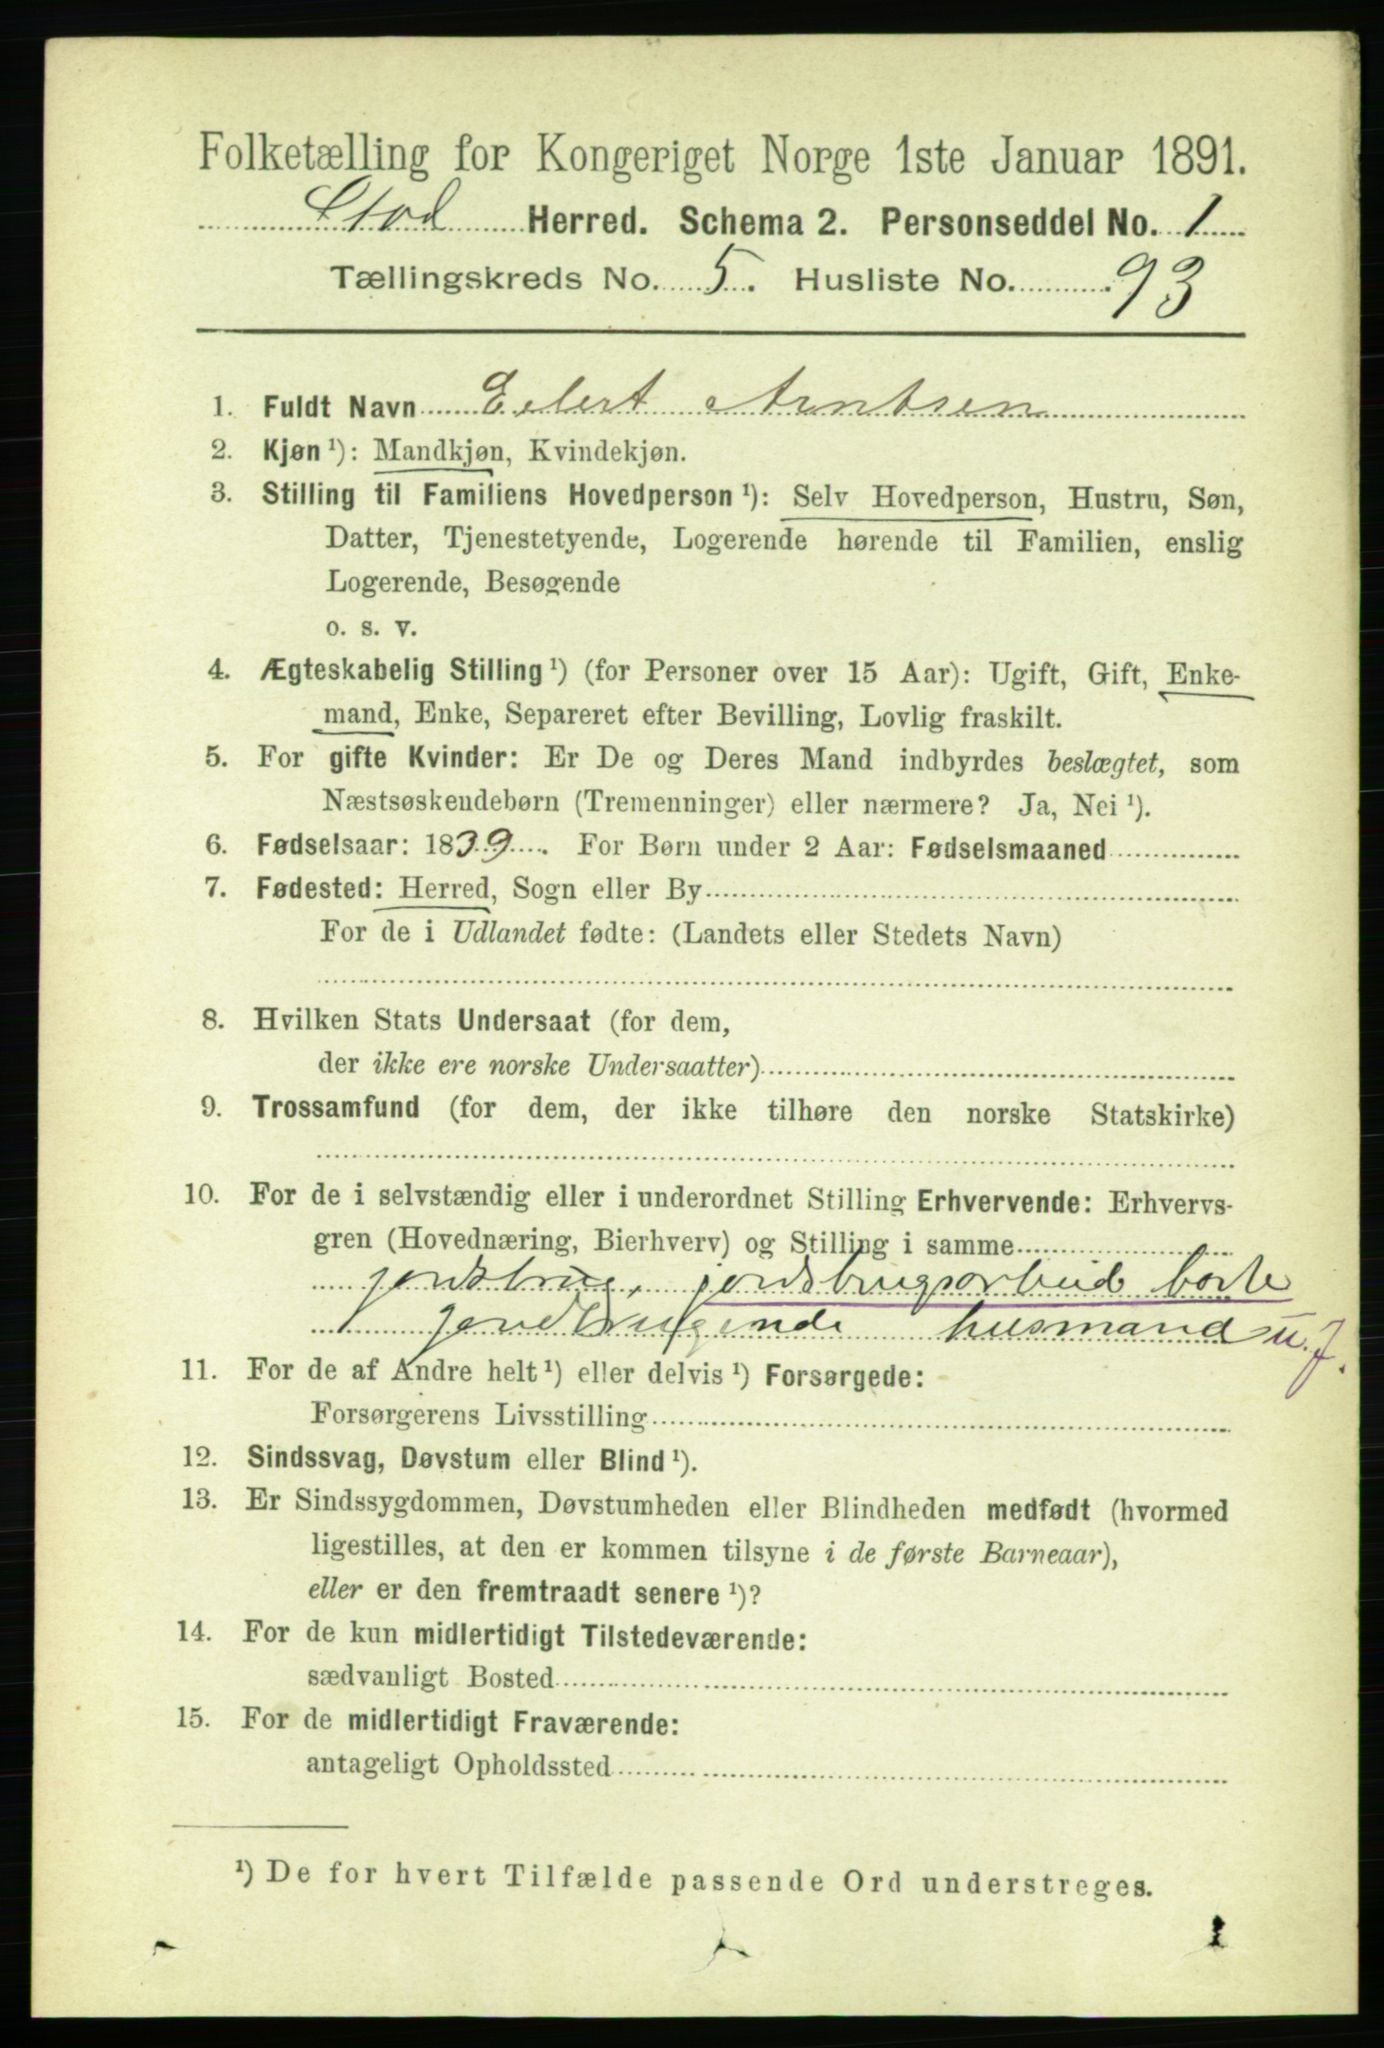 Folketælling for Kongeriget Norge 1ste Januar 1891.
Stod Herred. Schema 2. Personseddel No. 1
Tællingskreds No. 5. Husliste No. 93
1. Fuldt Navn Eilert Arntsen
2. Kjøn ¹): Mandkjøn, Kvindekjøn.
3. Stilling til Familiens Hovedperson ¹): Selv Hovedperson, Hustru, Søn,
Datter, Tjenestetyende, Logerende hørende til Familien, enslig
Logerende, Besøgende
o. s. v.
4. Ægteskabelig Stilling ¹) (for Personer over 15 Aar): Ugift, Gift, Enke-
mand, Enke, Separeret efter Bevilling, Lovlig fraskilt.
5. For gifte Kvinder: Er De og Deres Mand indbyrdes beslægtet, som
Næstsøskendebørn (Tremenninger) eller nærmere? Ja, Nei ¹).
6. Fødselsaar: 1839. For Børn under 2 Aar: Fødselsmaaned
7. Fødested: Herred, Sogn eller By
For de i Udlandet fødte: (Landets eller Stedets Navn)
8. Hvilken Stats Undersaat (for dem,
der ikke ere norske Undersaatter)
9. Trossamfund (for dem, der ikke tilhøre den norske Statskirke)
10. For de i selvstændig eller i underordnet Stilling Erhvervende: Erhvervs-
gren (Hovednæring, Bierhverv) og Stilling i samme
jordbrug, jordbrugsarbeid borte
jordbrugende husmand u. J.
11. For de af Andre helt ¹) eller delvis ¹) Forsørgede:
Forsørgerens Livsstilling
12. Sindssvag, Døvstum eller Blind ¹).
13. Er Sindssygdommen, Døvstumheden eller Blindheden medfødt (hvormed
ligestilles, at den er kommen tilsyne i de første Barneaar),
eller er den fremtraadt senere ¹)?
14. For de kun midlertidigt Tilstedeværende:
sædvanligt Bosted
15. For de midlertidigt Fraværende:
antageligt Opholdssted
¹) De for hvert Tilfælde passende Ord understreges.